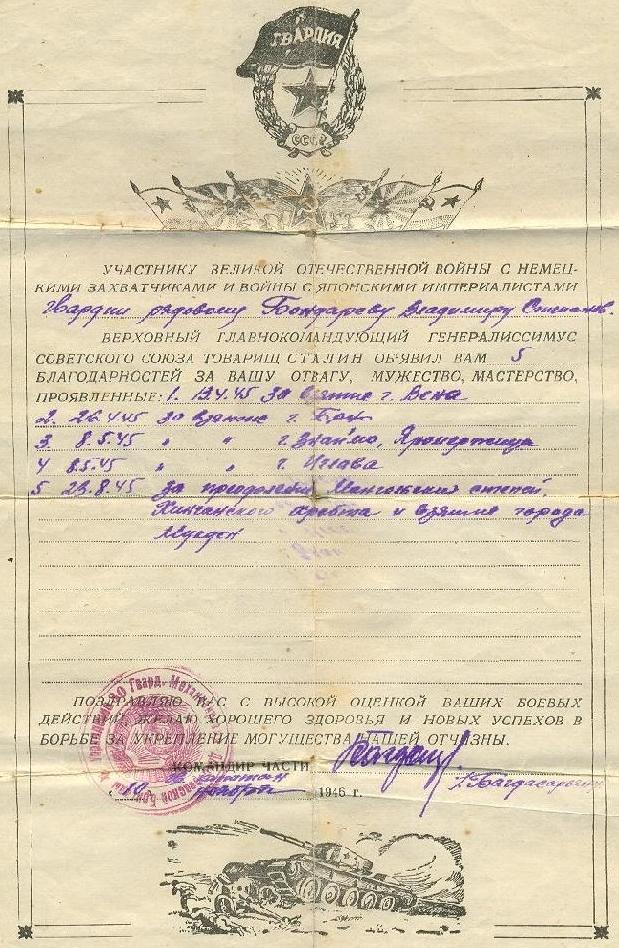 ГВАРДИЯ
СССР
УЧАСТНИКУ ВЕЛИКОЙ ОТЕЧЕСТВЕННОЙ ВОЙНЫ С НЕМЕЦ-
КИМИ ЗАХВАТЧИКАМИ И ВОЙНЫ С ЯПОНСКИМИ ИМПЕРИАЛИСТАМИ
Гвардии рядовому Бондареву Владимиру
ВЕРХОВНЫЙ ГЛАВНОКОМАНДУЮЩИЙ ГЕНЕРАЛИССИМУС
СОВЕТСКОГО СОЮЗА ТОВАРИЩ СТАЛИН ОБ'ЯВИЛ ВАМ 5
БЛАГОДАРНОСТЕЙ ЗА ВАШУ ОТВАГУ, МУЖЕСТВО, МАСТЕРСТВО,
ПРОЯВЛЕННЫЕ: 1. 13.4.45 За взятие г. Вена
2. 26.4.45 за взятие г.
3. 8.5.45 " " г. Знаймо,
4 8.5.45 " " г. Иглава
5 23.8.45 за преодоление Монгольских степей,
Хинганского хребта и взятие города
Мукден
ПОЗДРАВЛЯЮ ВАС С ВЫСОКОЙ ОЦЕНКОЙ ВАШИХ БОЕВЫХ
ДЕЙСТВИЙ, ЖЕЛАЮ ХОРОШЕГО ЗДОРОВЬЯ И НОВЫХ УСПЕХОВ В
БОРЬБЕ ЗА УКРЕПЛЕНИЕ МОГУЩЕСТВА НАШЕЙ ОТЧИЗНЫ.
КОМАНДИР ЧАСТИ
1946 г.